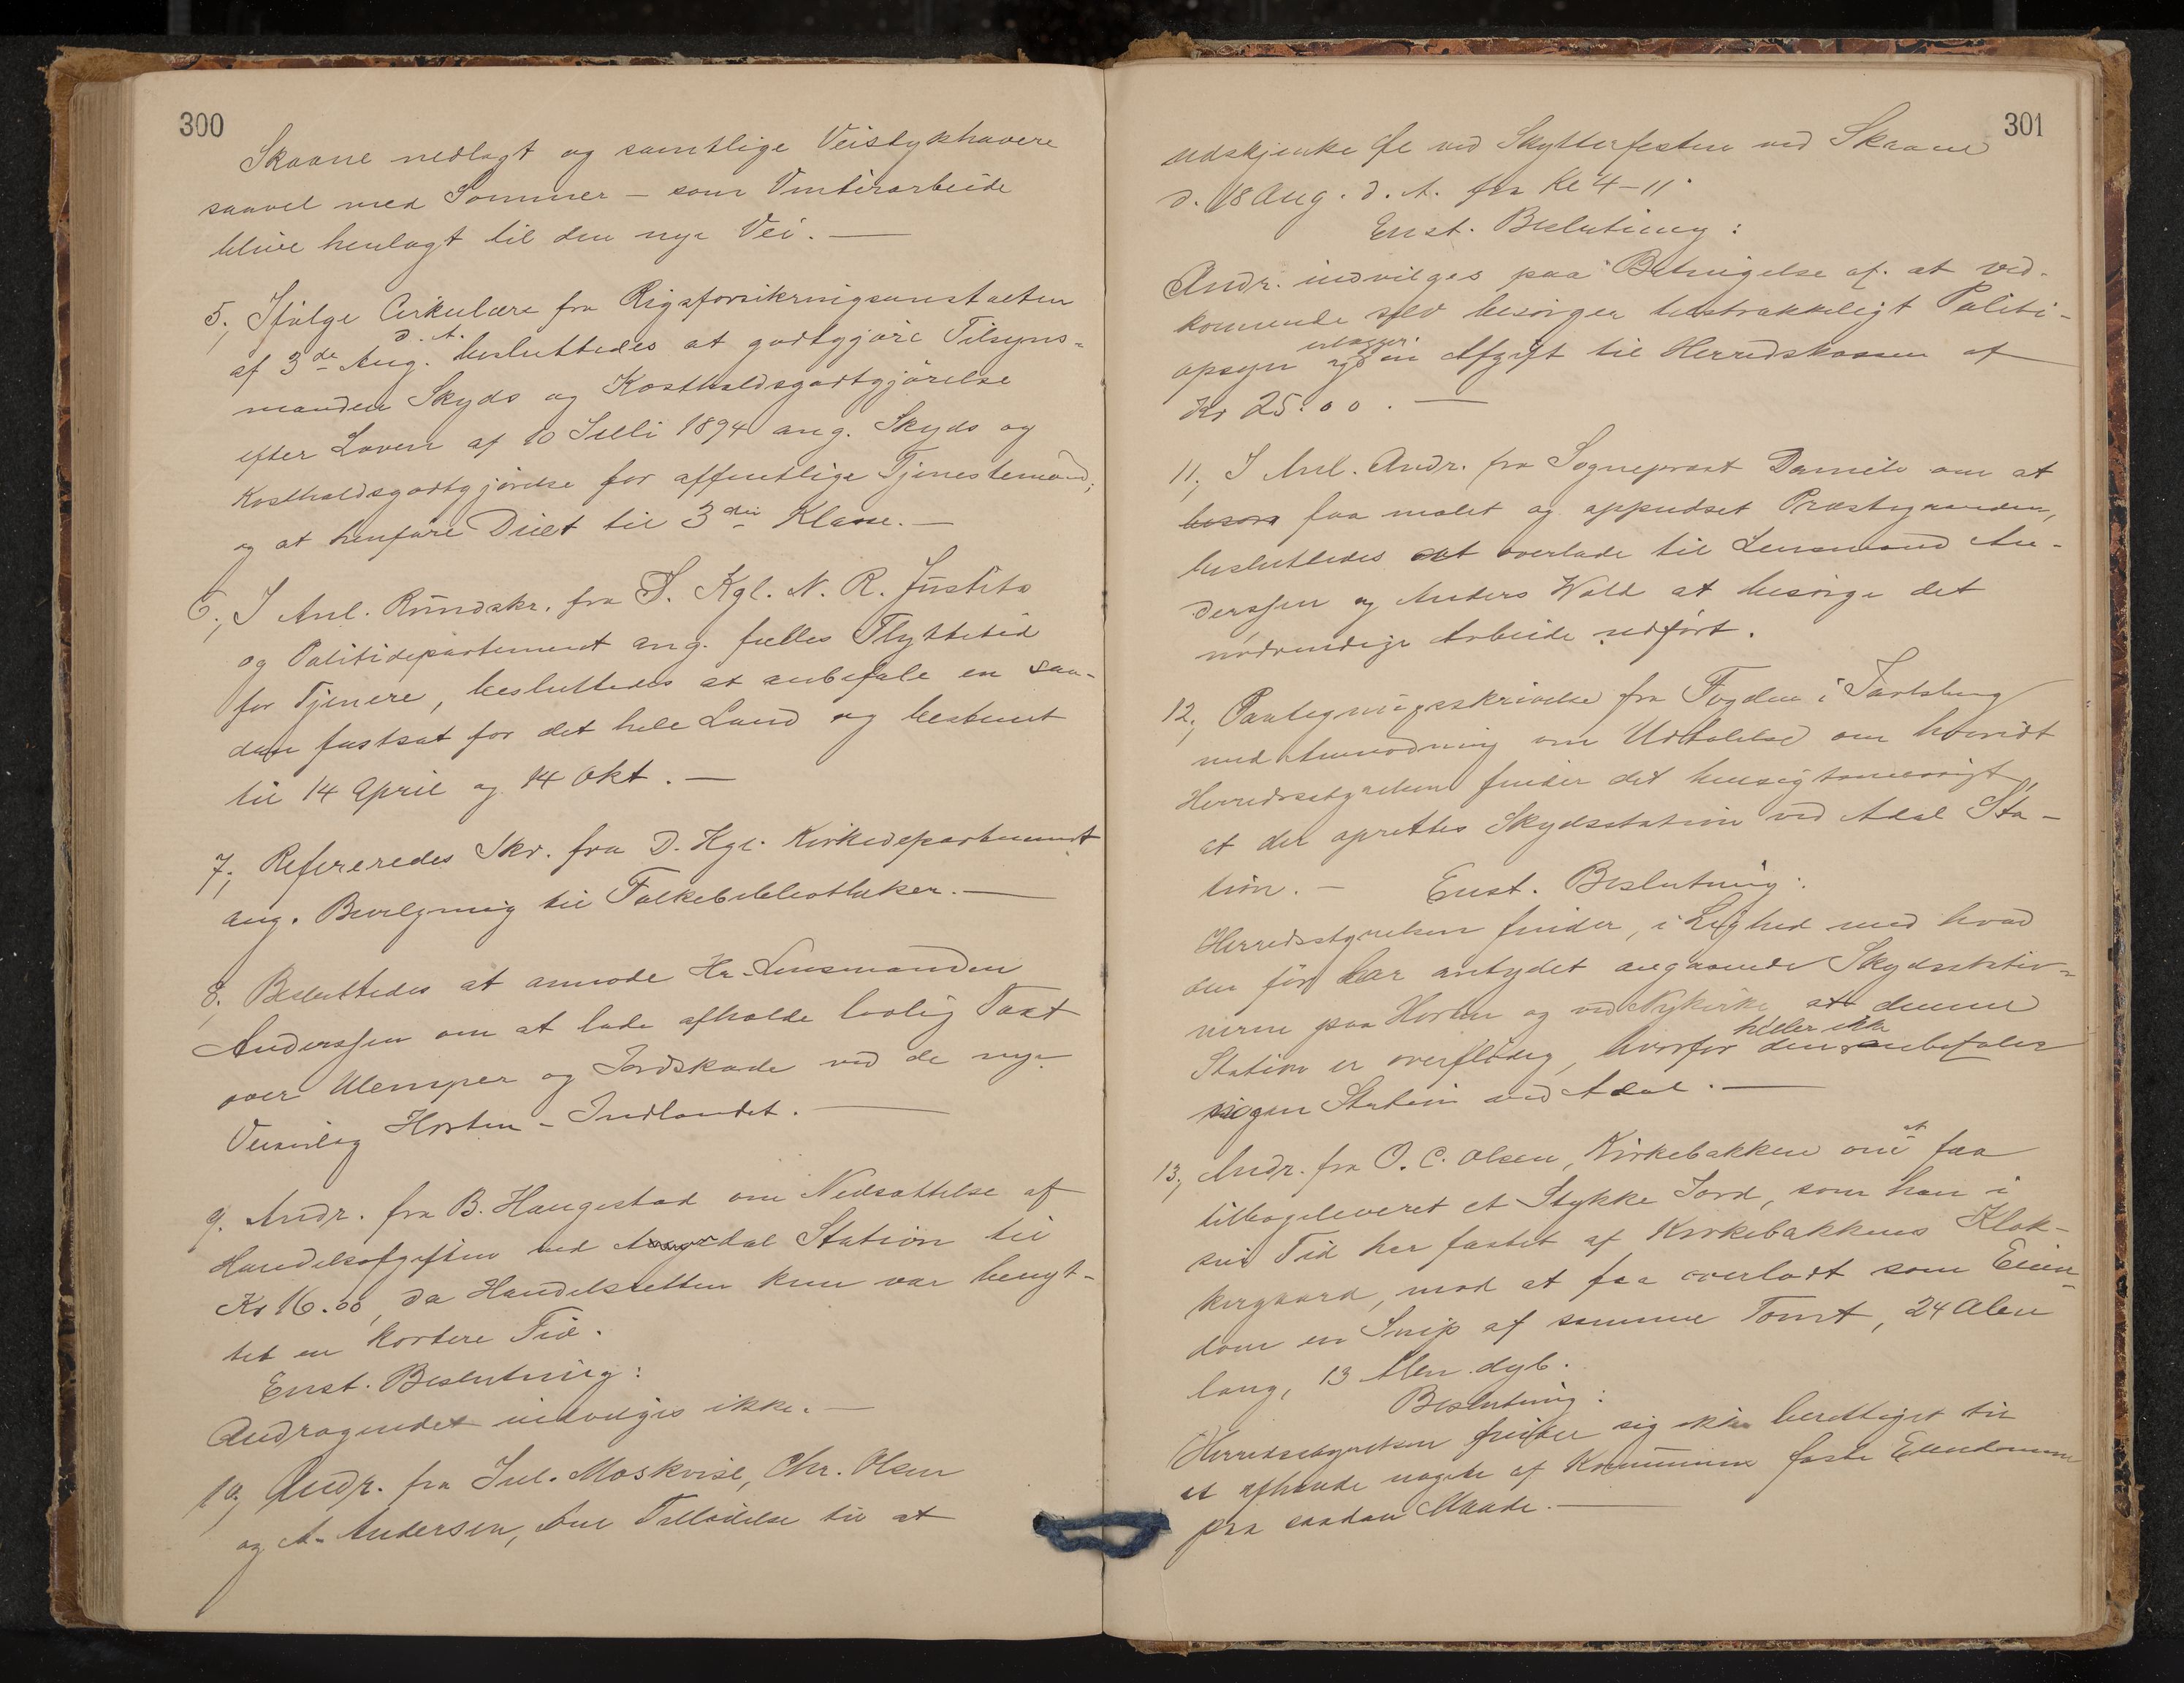 300
Skaane nedlagt og samtlige Veistykhavere
saavel med Sommer- som Vinterarbeide
blive henlagt til den nye Vei. —
5., Ifølge Cirkulære fra Rigsforsikringsanstalten
af 3de Aug. d. A. besluttedes at godtgjøre Tilsyns-
manden Skyds og Kostholdsgodtgjørelse
efter Loven af 10 Juli 1894 ang. Skyds og
Kostholdsgodtgjørelse for offentlige Tjenestemænd;
og at henføre Diæt til 3die Klasse. —
6., I Anl. Rundskr. fra D. Kgl. N. R. Justits
og Politidepartement ang. fælles Flyttetid
for Tjenere, besluttedes at anbefale en saa-
dan fastsat for det hele Land og bestemt
til 14 April og 14 Okt. —
7., Refereredes Skr. fra D. Kgl. Kirkedepartement
ang. Bevilgning til Folkebibliotheker. —
8., Besluttedes at anmode Hr. Lensmanden
Anderssen om at lade afholde lovlig Taxt
over Ulemper og Jordskade ved de nye
Veianlæg Horsten - Indlandet. —
9. Andr. fra B. Haugestad om Nedsættelse af
Handelsafgiften ved dal Station til
Kr 16.00, da Handelsretten kun var benyt-
tet en kortere Tid.
Enst. Beslutning:
Andragendet indvilges ikke. —
10., Andr. fra Jul. Moskvil, Chr. Olsen
og A. Andersen, om Tilladelse til at
301
udskjenke Øl ved Skytterfesten ved Skaane
d. 18 Aug. d. A. fra Kl 4-11.
Enst. Beslutning:
Andr. indvilges paa Betingelse af at ved-
kommende selv besørger tilstrækkeligt Politi-
opsyn og erlægger en Afgift til Herredskassen af
Kr 25.00. —
11., I Anl. Andr. fra Sogneprest Daniels om at
besørg faa malet og oppudset Præstegaarden,
besluttedes at overlade til Lensmand An-
derssen og Anders Wold at besørge det
nødvendige Arbeide udført.
12., Paategningsskrivelse fra Fogden i Jarlsberg
med Anmodning om Udtalelse om hvorvidt
Herredsstyrelsen finder det hensigtsmessigt,
at der oprettes Skydsstation ved Adal Sta-
tion. — Enst. Beslutning:
Herredsstyrelsen finder, i Lighed med hvad
den før har antydet angaaende Skydsstatio-
nerne paa Horten og ved Nykirke, at denne
Station er overflødig, hvorfor den heller ikke anbefaler
nogen Station ved Adal. —
13., Andr. fra O. C. Olsen, Kirkebakken om at faa
tilbageleveret et Stykke Jord, som han i
sin Tid har fæstet af Kirkebakkens Klok-
kergaard, mod at faa overladt som Eien-
dom en Snip af samme Tomt, 24 Alen
lang, 13 Alen dyb.
Beslutning:
Herredsstyrelsen finder sig ikke berettiget til
at afhænde noget af Kommunens faste Eiendomme
paa saadan Maade. —